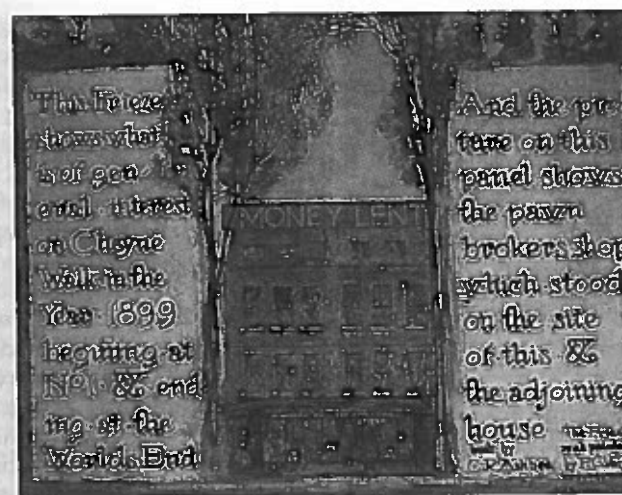 This Frieze
shows what
is of gen
eral interest
on Cheyne
Walk in the
Year 1899
begining at
No 1 & end
ing at the
Worlds End
MONEY LENT
And the pic
ture on this
panel shows
the pawn
brokers shop
which stood
on the site
of this &
the adjoining
house
C. R. Ashbee